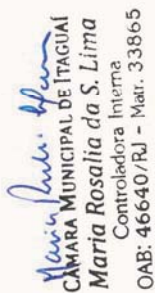 CÂMARA MUNICIPAL DE ITAGUAÍ
Maria Rosalia da S. Lima
Controladora Interna
OAB: 46640/RJ - Matr. 33865